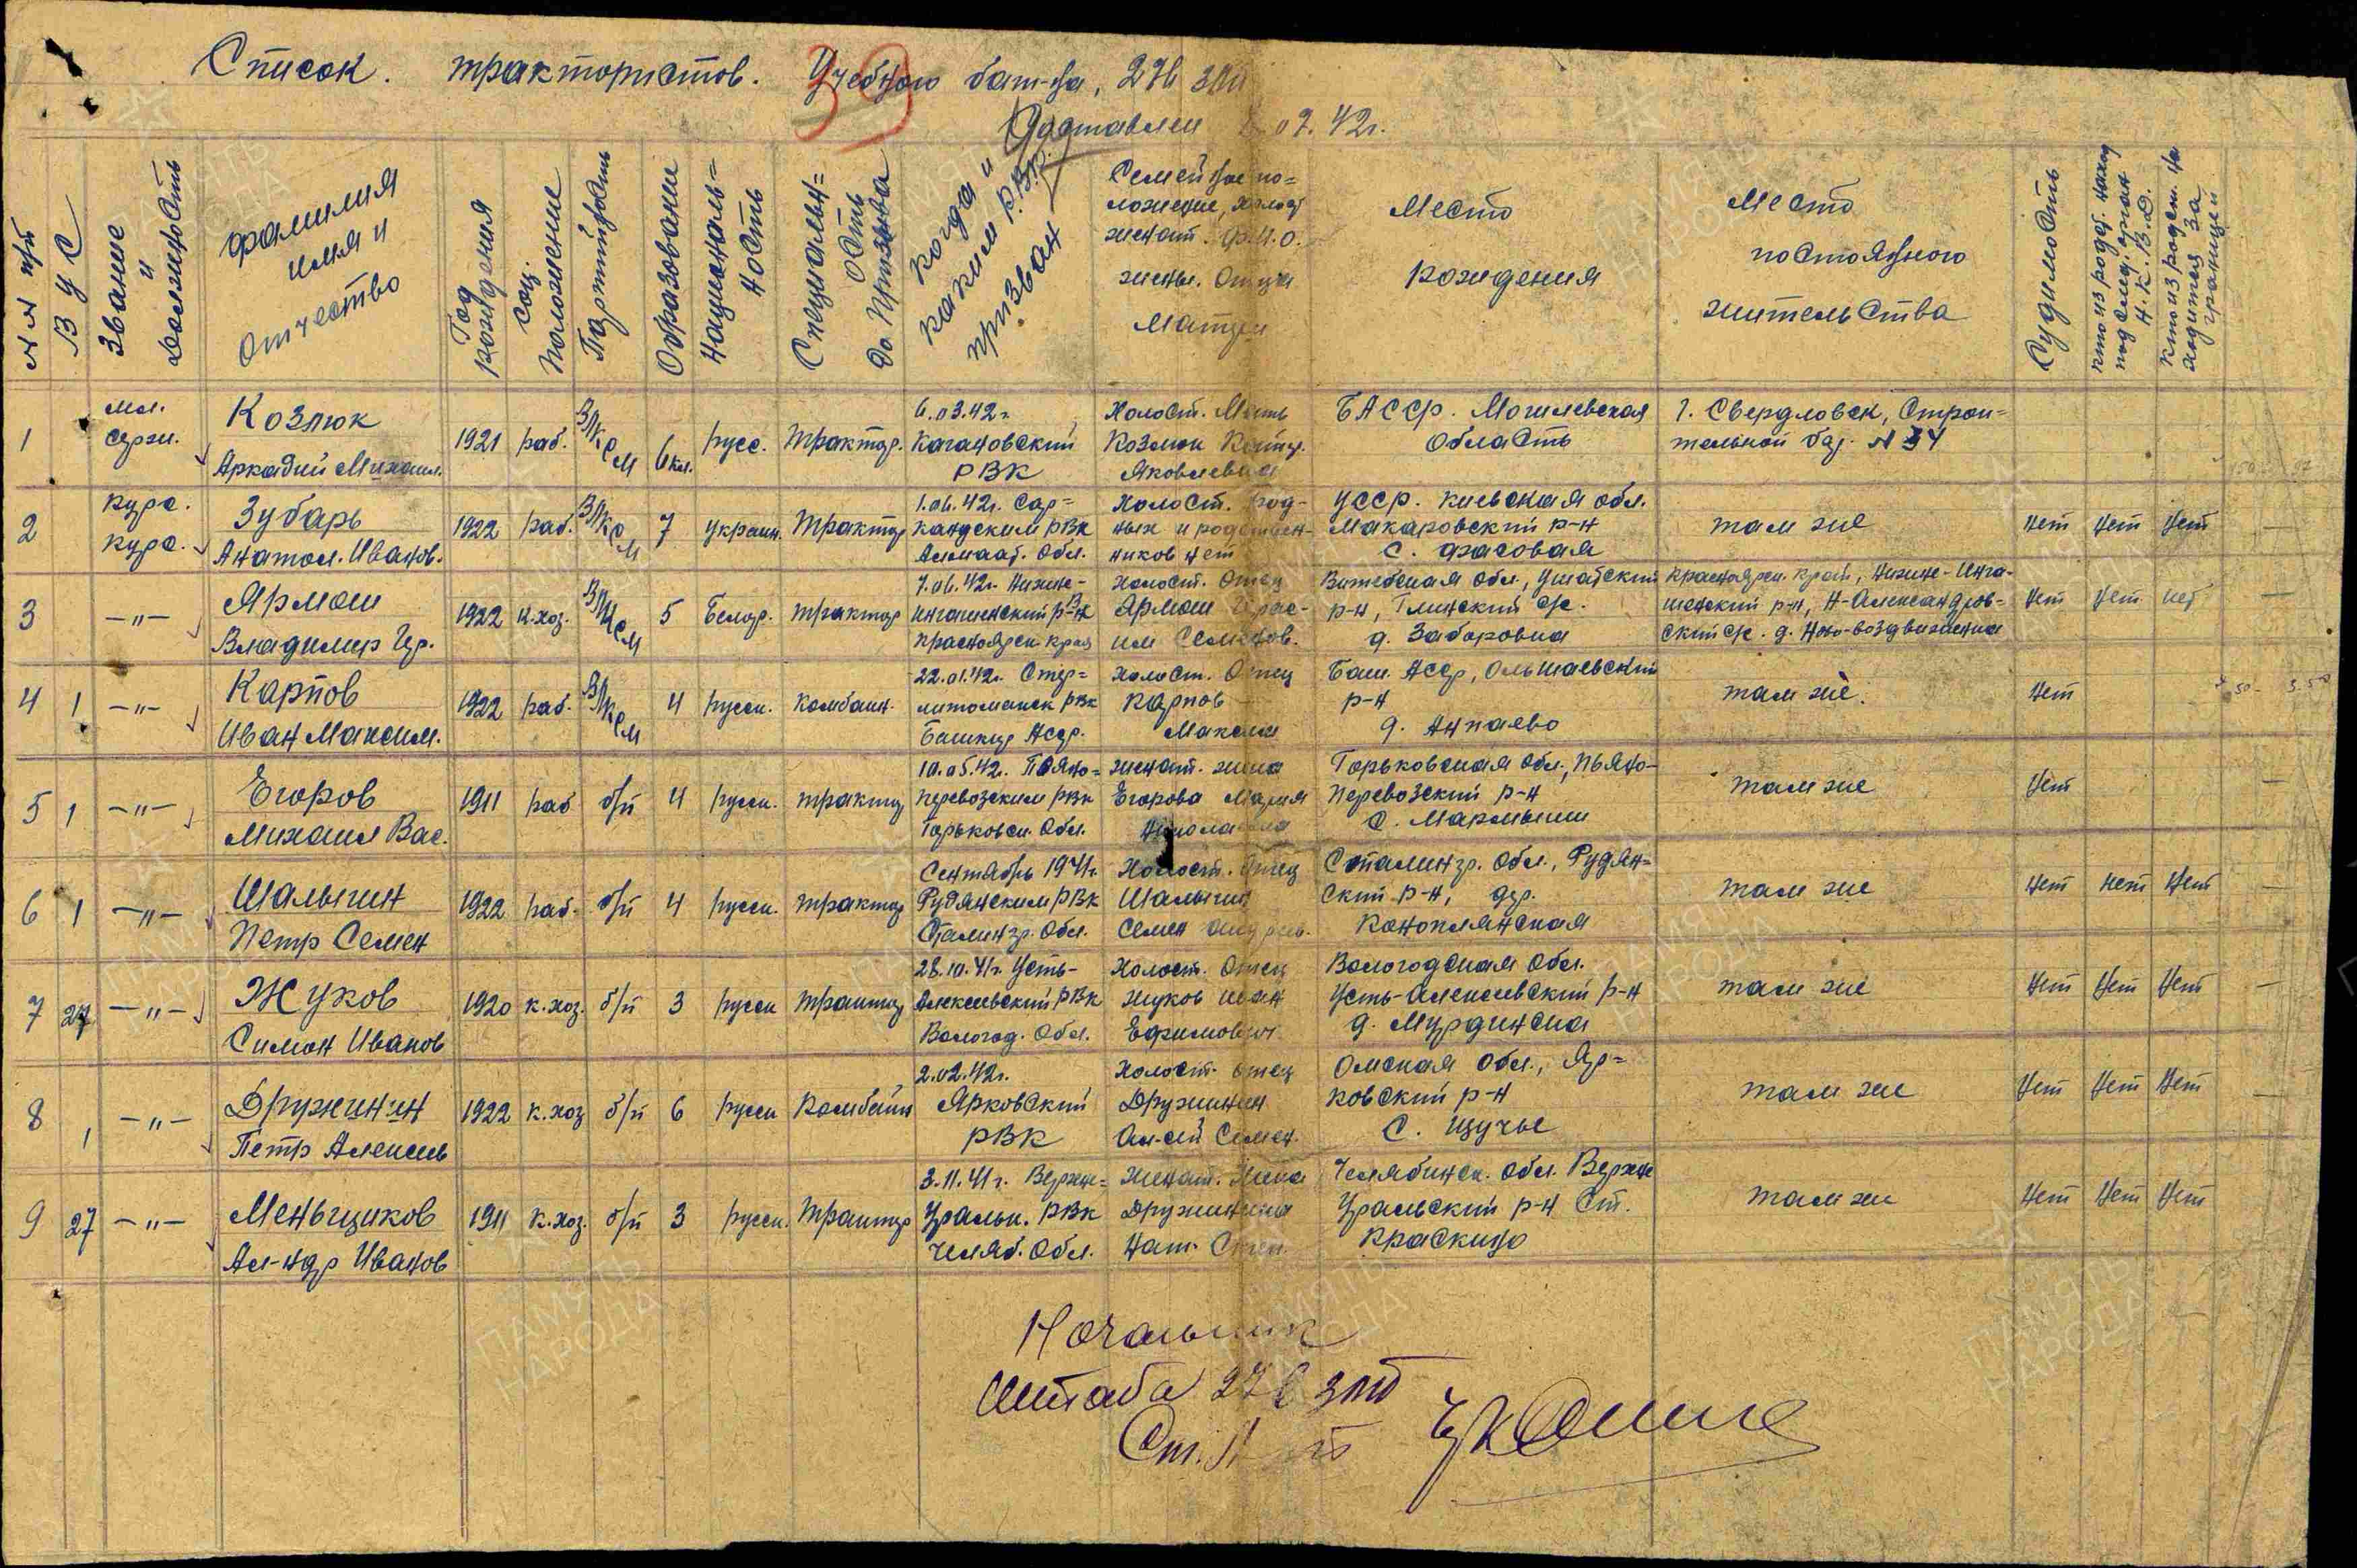 Список. трактористов. Учебного бат-на, 276 зпп
39
Доставлен 07.42г.
№№ пп
ВУС
Звание и должность
Фамилия имя и отчество
Год рождения
Соц. положение
Партийность
Образование
Националь=ность
Специальн=ость до призыва
Когда и каким РВК призван
Семейное по=ложение, холост женат. Ф.И.О. жены. Отца Матери
Место рождения
Место постоянного жительства
Судимость
Кто из родст. наход под след. орган Н.К.В.Д.
Кто из родст. на ходится за границей
1 мл. сержн. Козлюк Аркадий Михаил. 1921 раб. ВЛКСМ 6 кл. русс. трактор. 6.03.42г. Кагановский РВК Холост. Мать Козлюк Яковлевна БАССР. Могилевская область г. Свердловск, Строи=тельной № 34
2 курс. курс. Зубарь Анатол. Иванов. 1922 раб. ВЛКСМ 7 украин. трактор 1.06.42г. Сар=кандским РВК Алмаат. обл. Холост. Род-ных и родствен-ников нет УССР. Киевская обл. Макаровский р-н с. Фасовая там же нет нет нет —
3 —"— Ярмош Владимир Гр. 1922 к.хоз. ВЛКСМ 5 Белор. трактор 7.06.42г. Нижне-ингашевский р-н РВ Красноярск края холост. Отец Ярмош Семенов. Витебская обл., Ушатский р-н, Глинский с/с. д. Заборовна Красноярск. край, Нижне-Инга-шевский р-н, Н-Александров-ский с/с. д. Ново-воздвиженка нет нет нет —
4 1 —"— Карпов Иван Максим. 1922 раб. ВЛКСМ 4 русск. комбайн. 22.01.42г. Стер=литоманск РВК Башкир АССР. холост. Отец Карпов Максим Баш. АССР, Ольшаевский р-н д. Анпаево там же. нет
5 1 —"— Егоров Михаил Вас. 1911 раб б/п 4 русск. трактор 10.05.42г. Пьяно=перевозским РВК Горьковск. обл. женат. жена Егорова Мария Горьковская обл., Пьяно-перевозский р-н с. Мармыши там же нет —
6 1 —"— Шалыгин Петр Семен 1922 раб. б/п 4 русск. трактор Сентябрь 1941г. Рудянским РВК Сталингр. обл. Холост. Отец Шалыгин Семен Сталингр. обл., Рудян=ский р-н, дер. Коноплянская там же нет нет нет —
7 27 —"— Жуков Симон Иванов 1920 к.хоз. б/п 3 русск трактор 28.10.41г. Усть-Алексеевский РВК Вологод. обл. Холост. Отец Жуков Иван Ефимович Вологодская обл. Усть-Алексеевский р-н д. Мурдинска там же нет нет нет —
8 1 —"— Дружинин Петр Алексеев 1922 к.хоз б/п 6 русск комбайн 2.02.42г. Ярковский РВК Холост. отец Дружинин Ал-сей Семен. Омская обл., Яр=ковский р-н с. Щучье там же нет нет нет —
9 27 —"— Меньщиков Ал-ндр Иванов 1911 к.хоз. б/п 3 русск. трактор 3.11.41г. Верхне=Уральск. РВК Челяб. обл. женат. Жена Дружинина Нат. Степ. Челябинск. обл. Верхне Уральский р-н ст. Краскино там же нет нет нет
Начальник
Штаба 276 зпп
Ст. Л-т